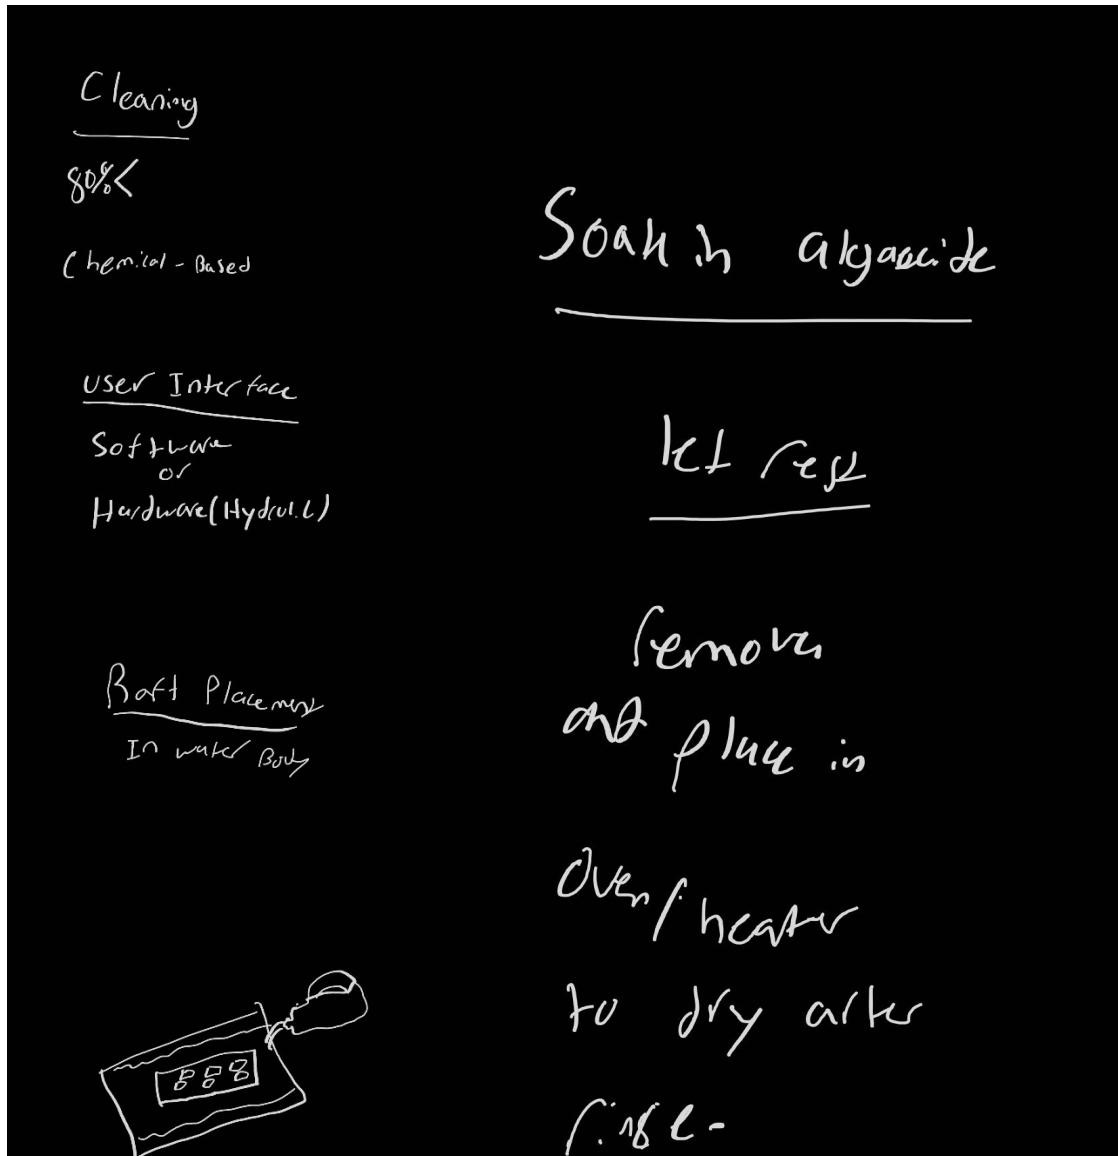 Cleaning
80%<
Chemical-Based
User Interface
Software
or
Hardware(Hydraulic)
Raft Placement
In water Body
888
Soak in algaecide
let rest
remove
and place in
oven/heater
to dry after
rinse-